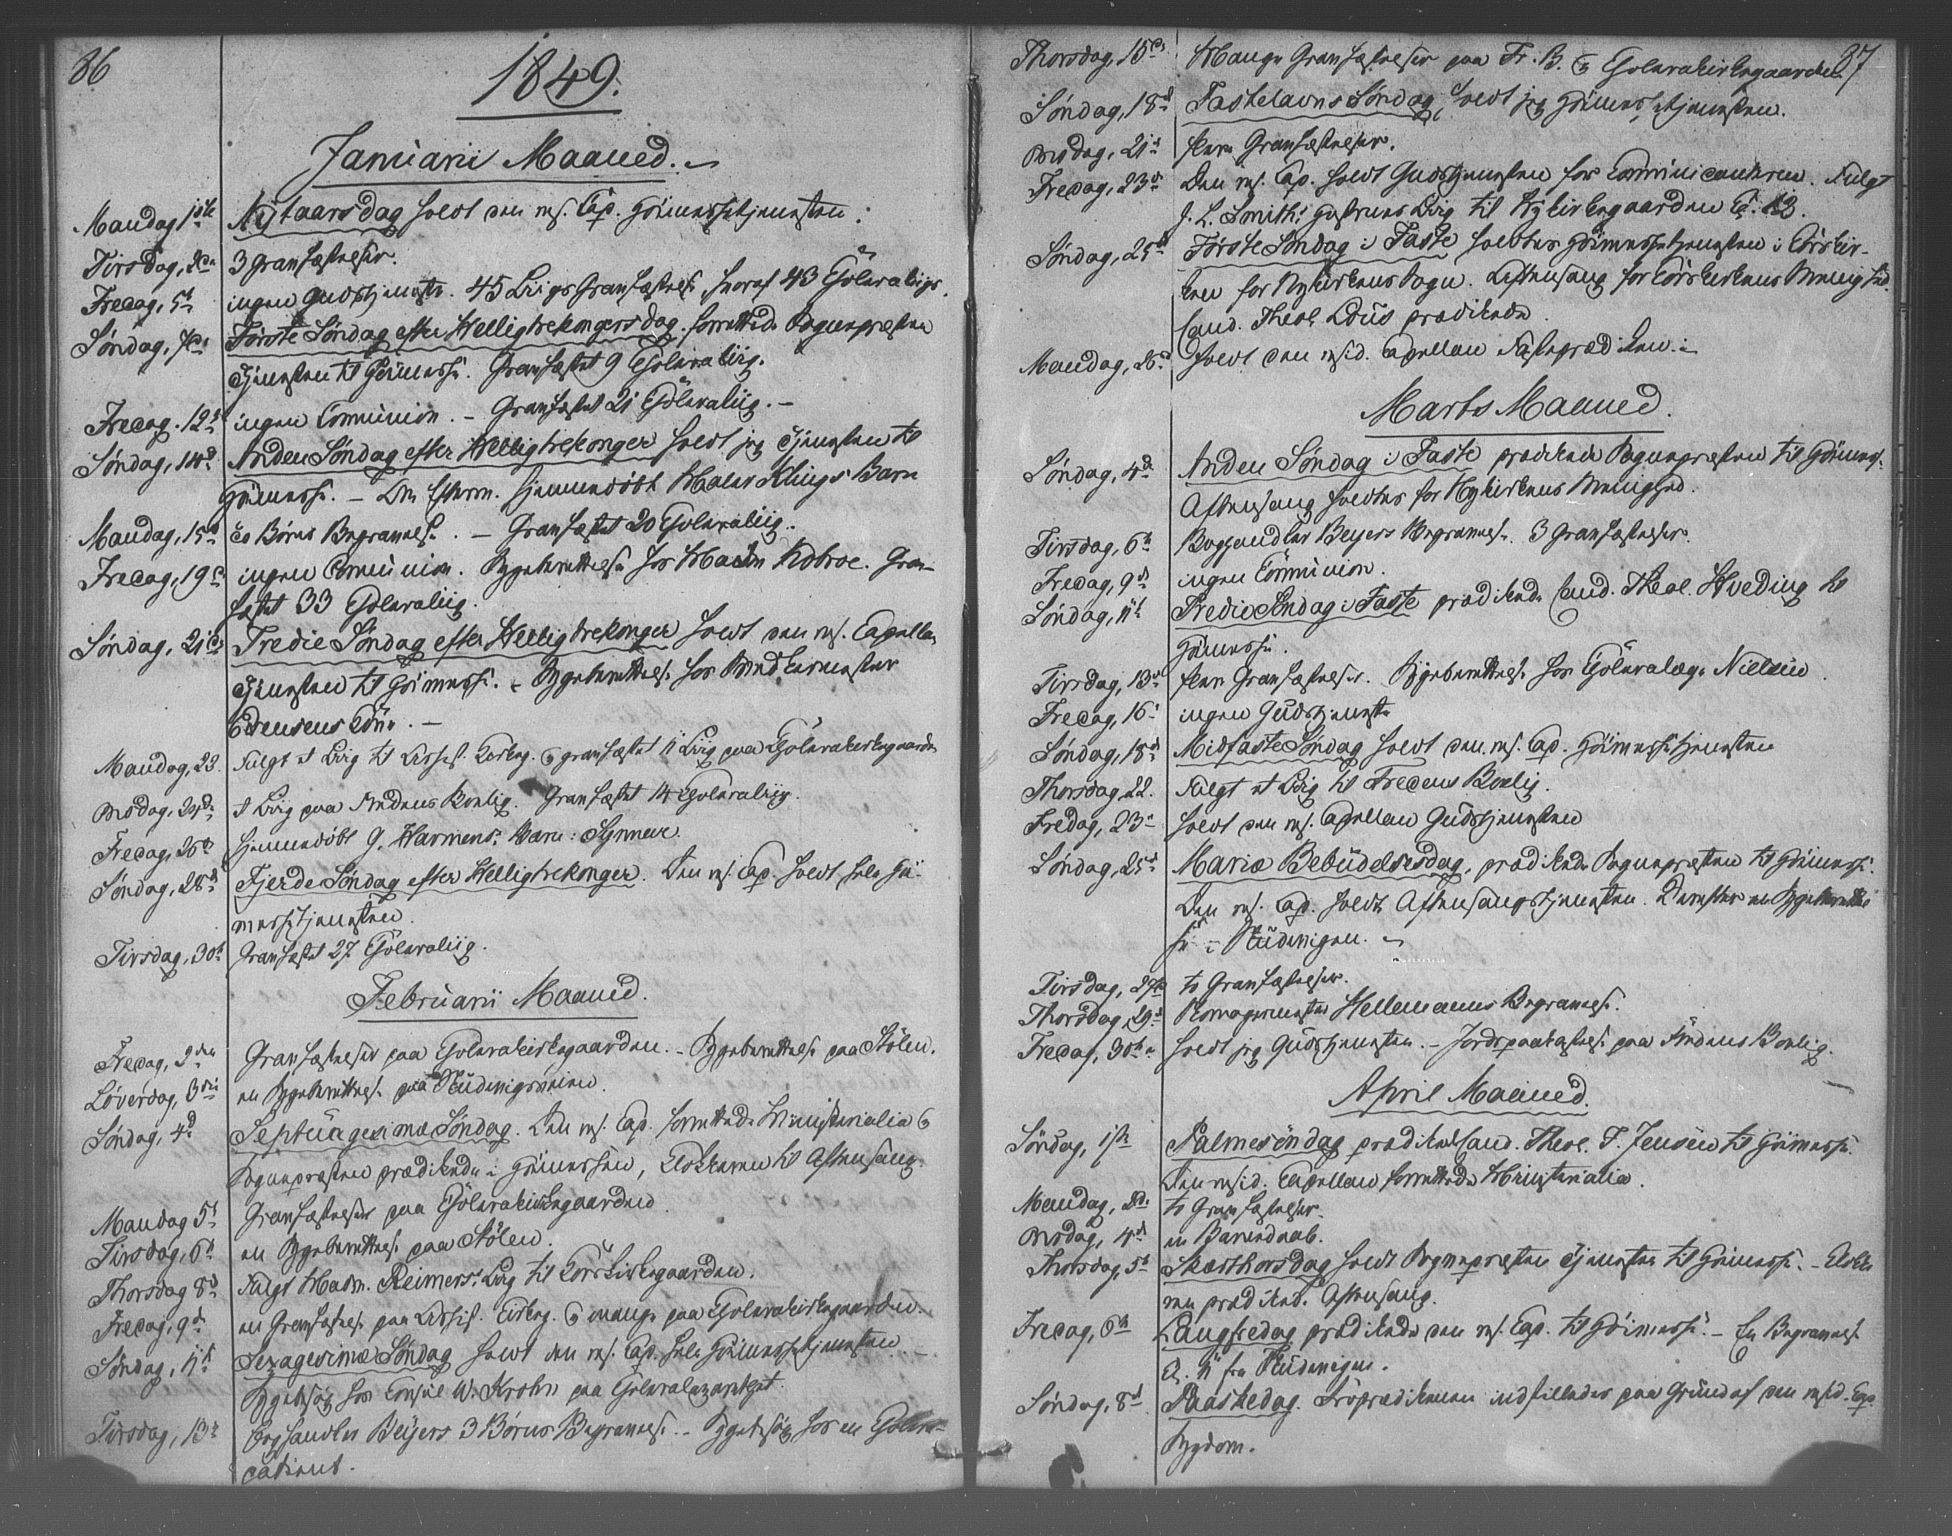 86
1849.
Januarii Maaned.
Mandag 1ste Nytaarsdag holdt den res. Cap. Høimessetjenesten.
Tirsdag, 2den 3 Gravfæstelser.
Fredag, 5t ingen Gudstjeneste. 45 Liigs Gravfæstelse hvoraf 43 Choleraliig.
Søndag, 7de Første Søndag efter Helligtrekongersdag forrettede Sognepræsten
Tjenesten til Høimesse. Gravfæstet 9 Choleraliig.
Fredag. 12t ingen Communion. – Gravfæstet 21 Choleraliig. –
Søndag, 14d Anden Søndag efter Helligtrekonger holdt jeg Tjenesten til
Høimesse. – Om Efterm. hjemmedøbt Maler Klings Barn
Mandag, 15d to Børns Begravelse. – Gravfæstet 20 Choleraliig.
Fredag, 19de ingen Communion. Sygeberettelse hos Madm Kobroe. Grav-
fæstet 33 Choleraliig.
Søndag, 21de Tredie Søndag efter Helligtrekonger holdt den res. Capellan
Tjenesten til Høimesse. – Sygeberettelse hos
Edensens Kone. –
Mandag, 23. Fulgt et Liig til Assist. Kirkeg. & gravfæstet 11 Liig paa Cholerakirkegaarden
Onsdag, 24de et Liig paa Aandens Bolig. Gravfæstet 14 Choleraliig.
Fredag, 26de hjemmedøbt G. Harmens Barn: Synneve.
Søndag, 28d Fjerde Søndag efter Helligtrekonger. Den res. Cap. holdt hele Høi-
messetjenesten.
Tirsdag, 30t Gravfæstet 27 Choleraliig.
Februarii Maaned.
Fredag, 2den Gravfæstelser paa Cholerakirkegaarden. – Sygeberettelse paa Stølen.
Løverdag, 3die en Sygeberettelse paa
Søndag, 4d Septuagesimæ Søndag. Den res. Cap. forrettede Ministerialia &
Sognepræsten prædikede i Høimessen, Klokkeren til Aftensang.
Mandag 5t Gravfæstelser paa Cholerakirkegaarden
Tirsdag, 6t en Sygeberettelse paa Stølen.
Thorsdag 8d fulgt Madm. Reimers's Liig til Korskirkegaarden.
Fredag, 9d en Gravfæstelse paa Assist. Kirkeg. & mange paa Cholerakirkegaarden.
Søndag, 11t Sexagesimæ Søndag holdt den res. Cap. hele Høimessetjenesten –
Sygebesøg hos Consul W. Krohn paa Choleralazarethet.
Tirsdag, 13t Boghandler Beyers 3 Børns Begravelse. – Sygebesøg hos en Cholera-
patient.
87
Thorsdag, 15de Mange Gravfæstelser paa Fr. B. & Cholerakirkegaarden.
Søndag, 18d Fastelavns Søndag, holdt jeg Høimessetjenesten.
Onsdag, 21d flere Gravfæstelser.
Fredag, 23d Den res. Cap. holdt Gudstjenesten for Communicanterne. Fulgt
J. L. Smith's Hustrues Liig til Nykirkegaarden Kl. 12.
Søndag, 25d Første Søndag i Faste holdtes Høimessetjenesten i Korskir-
ken for Nykirkens Sogn. Aftensang for Korskirkens Menighed.
Cand. Theol. Döus prædikede.
Mandag, 26d holdt den resid. Capellan Fasteprædiken. –
Marts Maaned.
Søndag, 4de Anden Søndag i Faste prædikede Sognepræsten til Høimesse.
Aftensang holdtes for Nykirkens Menighed.
Tirsdag, 6t Boghandler Beyers Begravelse. 3 Gravfæstelser.
Fredag, 9d ingen Communion.
Søndag, 11t Tredie Søndag i Faste prædikede Cand. Theol. Hveding til
Høimesse.
Tirsdag, 13d flere Gravfæstelser. Sygeberettelse hos Choleralæge Nielsen.
Fredag, 16t ingen Gudstjeneste
Søndag, 18d Midfaste Søndag holdt den res. Cap. Høimessetjenesten
Thorsdag 22. Fulgt et Liig til Fredens Bolig.
Fredag, 23d holdt den res. Capellan Gudstjenesten
Søndag, 25d Mariæ Bebudelsesdag, prædikede Sognepræsten til Høimesse.
Den res. Cap. holdt Aftensangstjenesten. Derefter en Sygeberettel-
se i
Tirsdag, 27de to Gravfæstelser.
Thorsdag, 29d Hellemanns Begravelse.
Fredag, 30te holdt jeg Gudstjenesten. – Jordspaakastelse paa Aandens Bolig.
April Maaned.
Søndag, 1ste Palmesøndag prædikede Cand. Theol. T. Jensen til Høimesse.
Den resid. Capellan forrettede Ministerialia.
Mandag, 2de to Gravfæstelser.
Onsdag, 4d en Barnedaab.
Thorsdag, 5t Skærthorsdag holdt Sognepræsten Tjenesten til Høimesse. – Klokke-
ren prædikede Aftensang.
Fredag, 6te Langfredag prædikede den res. Cap. til Høimesse. – En Begravelse
Kl. 11 fra
Søndag, 8d Paaskedag. Froprædikenen indstilledes paa Grund af den resid. Cap.
Sygdom.